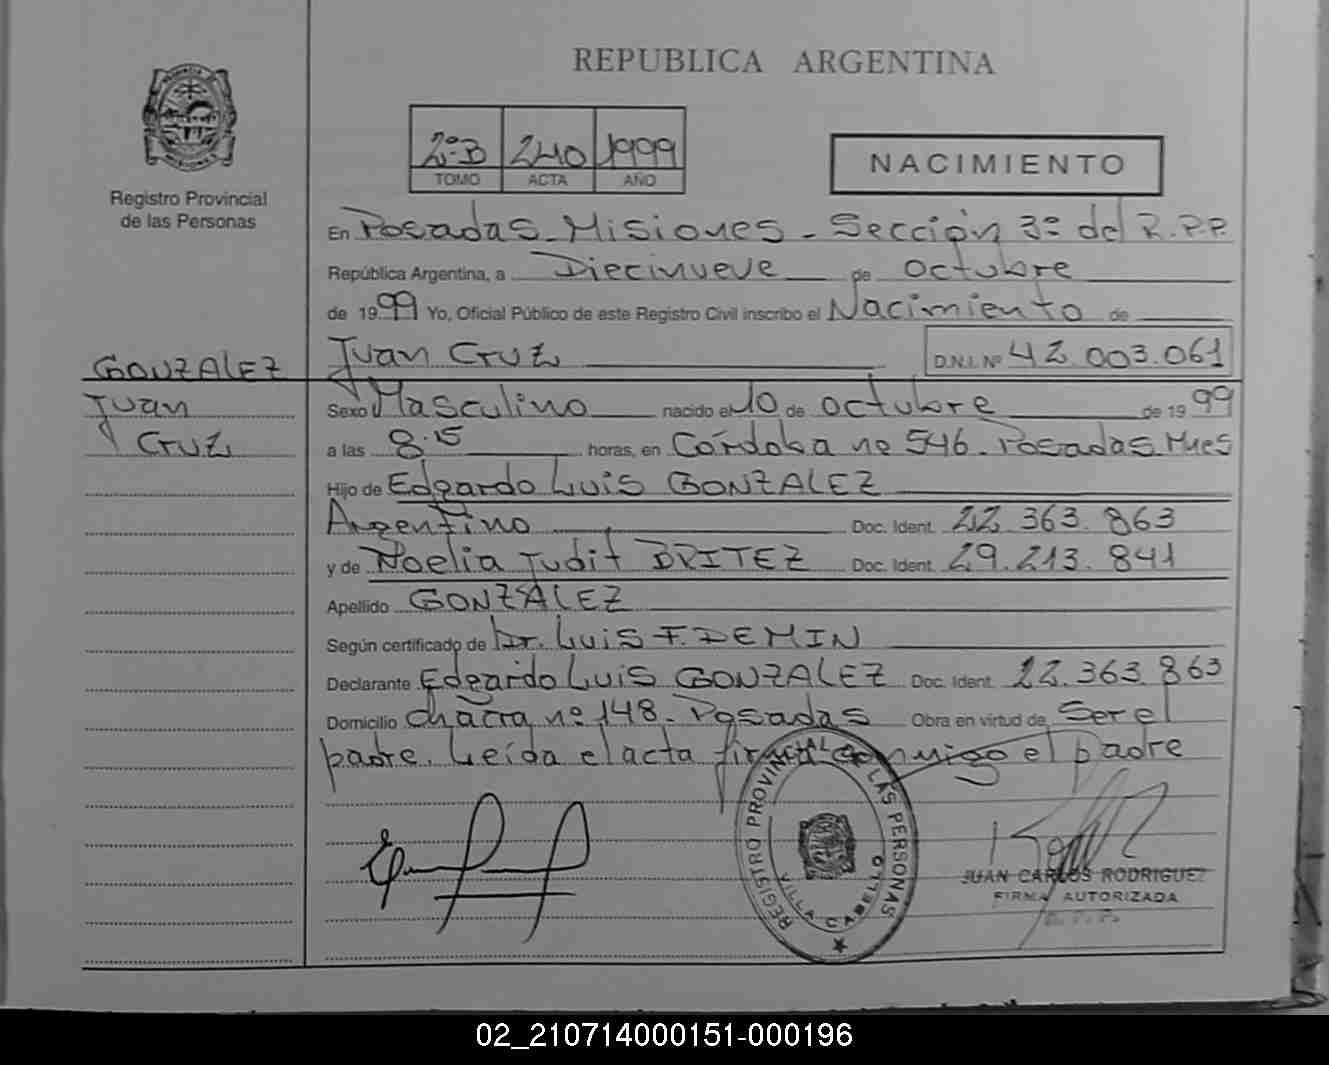 REPUBLICA ARGENTINA
Registro Provincial
de las Personas
2º B 240 1999
TOMO ACTA AÑO
NACIMIENTO
En Posadas - Misiones - Sección 3º del R.P.P.
República Argentina, a Diecinueve de octubre
de 1999 Yo, Oficial Público de este Registro Civil inscribo el Nacimiento de
Juan Cruz D.N.I. Nº 42.003.061
GONZALEZ
Juan
Cruz
Sexo Masculino nacido el 10 de octubre de 1999
a las 8.15 horas, en Córdoba nº 546 - Posadas Mnes
Hijo de Edgardo Luis GONZALEZ
Argentino Doc. Ident. 22.363.863
y de Noelia Judit BRITEZ Doc. Ident. 29.213.841
Apellido GONZALEZ
Según certificado de Dr. Luis F. DEMIN
Declarante Edgardo Luis GONZALEZ Doc. Ident. 22.363.863
Domicilio chacra nº 148 - Posadas Obra en virtud de Ser el
padre. Leída el acta firma conmigo el padre
REGISTRO PROVINCIAL DE LAS PERSONAS
VILLA CABELLO
JUAN CARLOS RODRIGUEZ
FIRMA AUTORIZADA
02_210714000151-000196